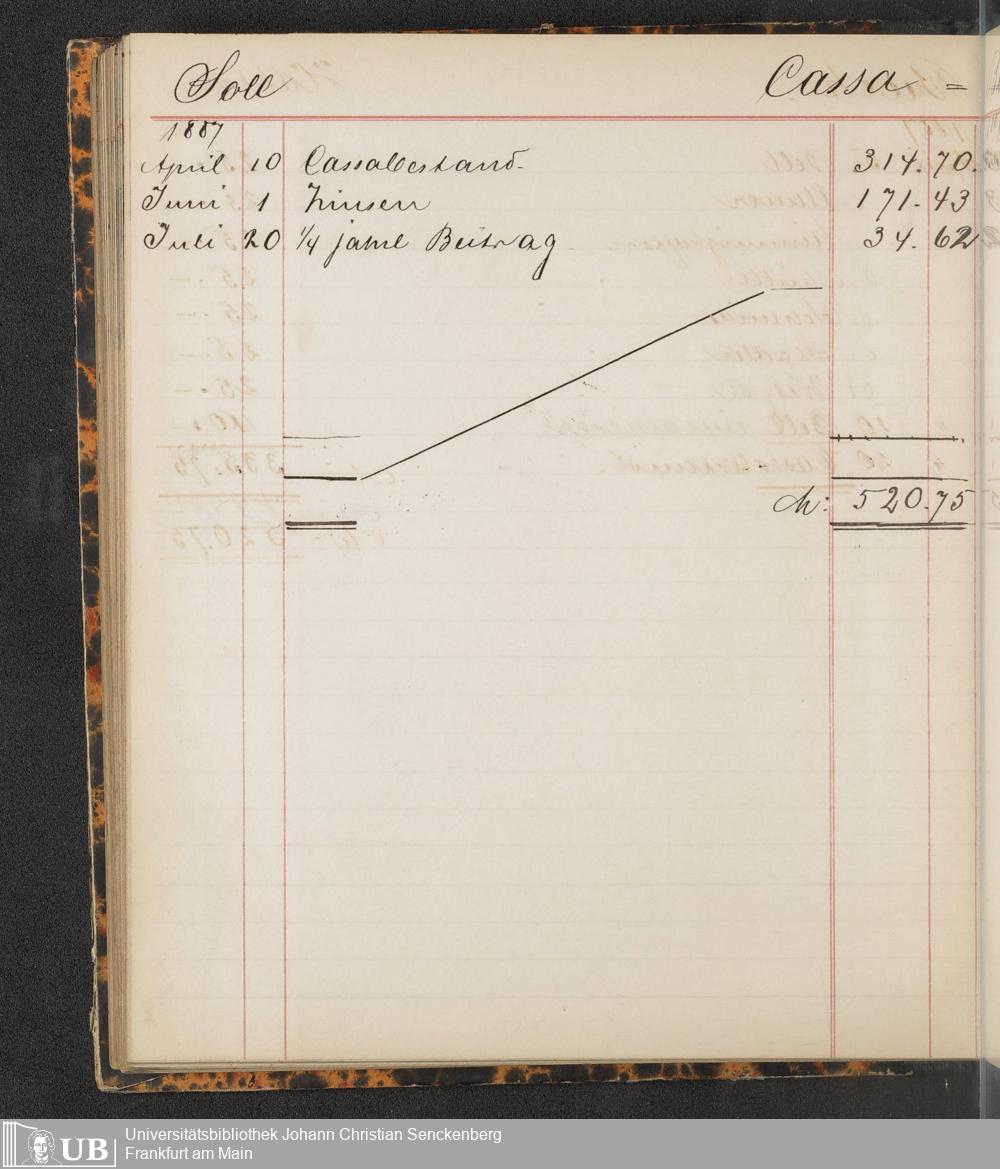 Soll Cassa =
1887
April 10 Cassabestand 314. 70.
Juni 1 Zinsen 171. 43
Juli 20 1/4 jährl Beitrag 34. 62
M: 520. 75
UB Universitätsbibliothek Johann Christian Senckenberg
Frankfurt am Main